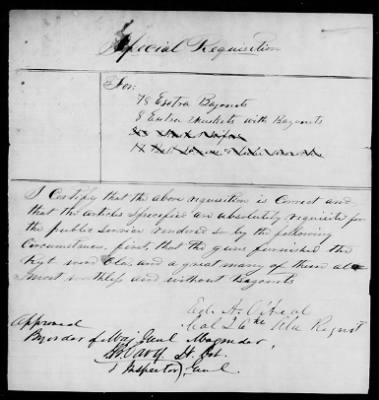 Special Requisition
For:
78 Exstra Bayonets
8 Extra muskets with Bayonets
I Certify that the above requisition is Correct and
that the articles specified are absolutely requisite for
the public service rendered so by the following
Circumstances, first, that the guns furnished the
Regt were Old and a great many of them al=
most worthless and without Bayonets
Edw A. O'Neal
Col 26th Ala Regmt
Approved
By order of Maj Genl Magruder
H. B. Cary Lt. Col.
Inspector Genl.